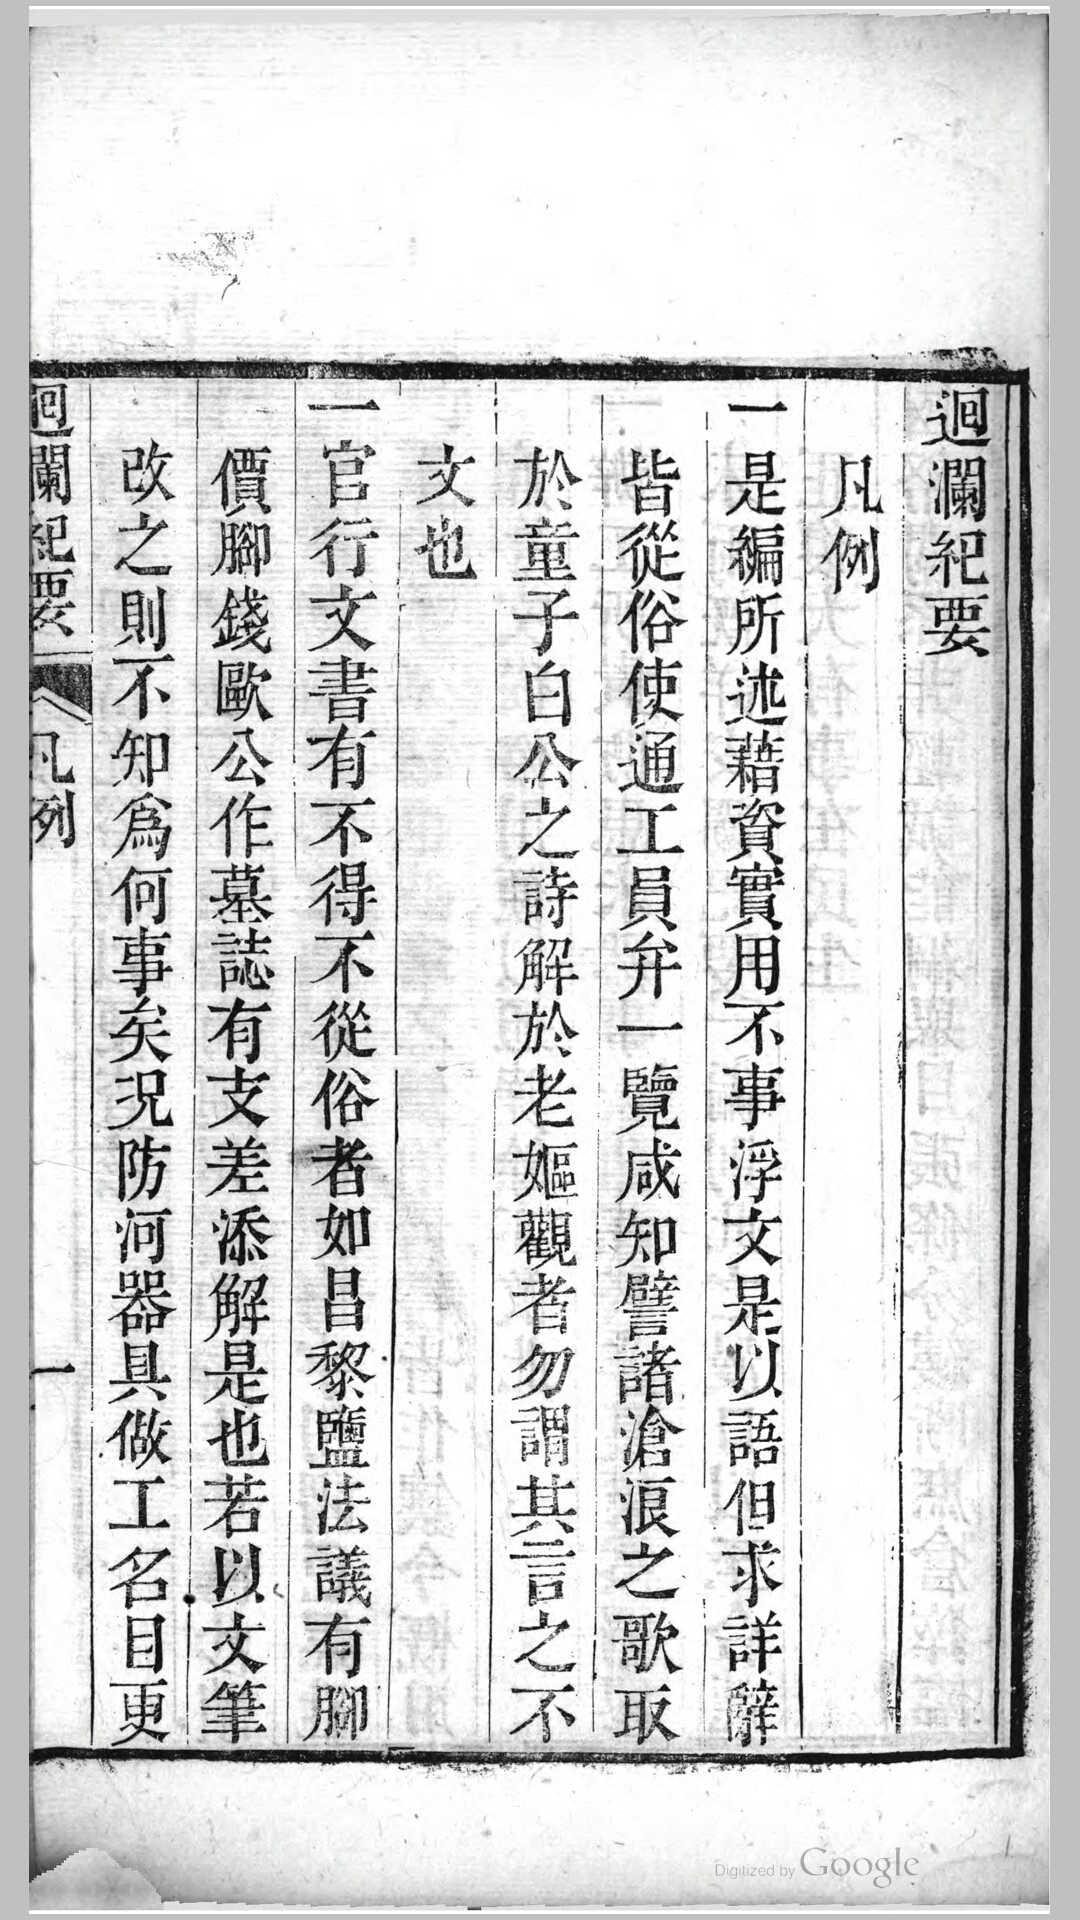 迴瀾紀要
凡例
一是編所述藉資實用不事浮文是以語但求詳辭
皆從俗使通工員弁一覽咸知譬諸滄浪之歌取
於童子白公之詩解於老嫗觀者勿謂其言之不
文也
一官行文書有不得不從俗者如昌黎鹽法議有腳
價腳錢歐公作墓誌有支差添解是也若以文筆
改之則不知爲何事矣況防河器具做工名目更
迴瀾紀要 凡例 一
Digitized by Google